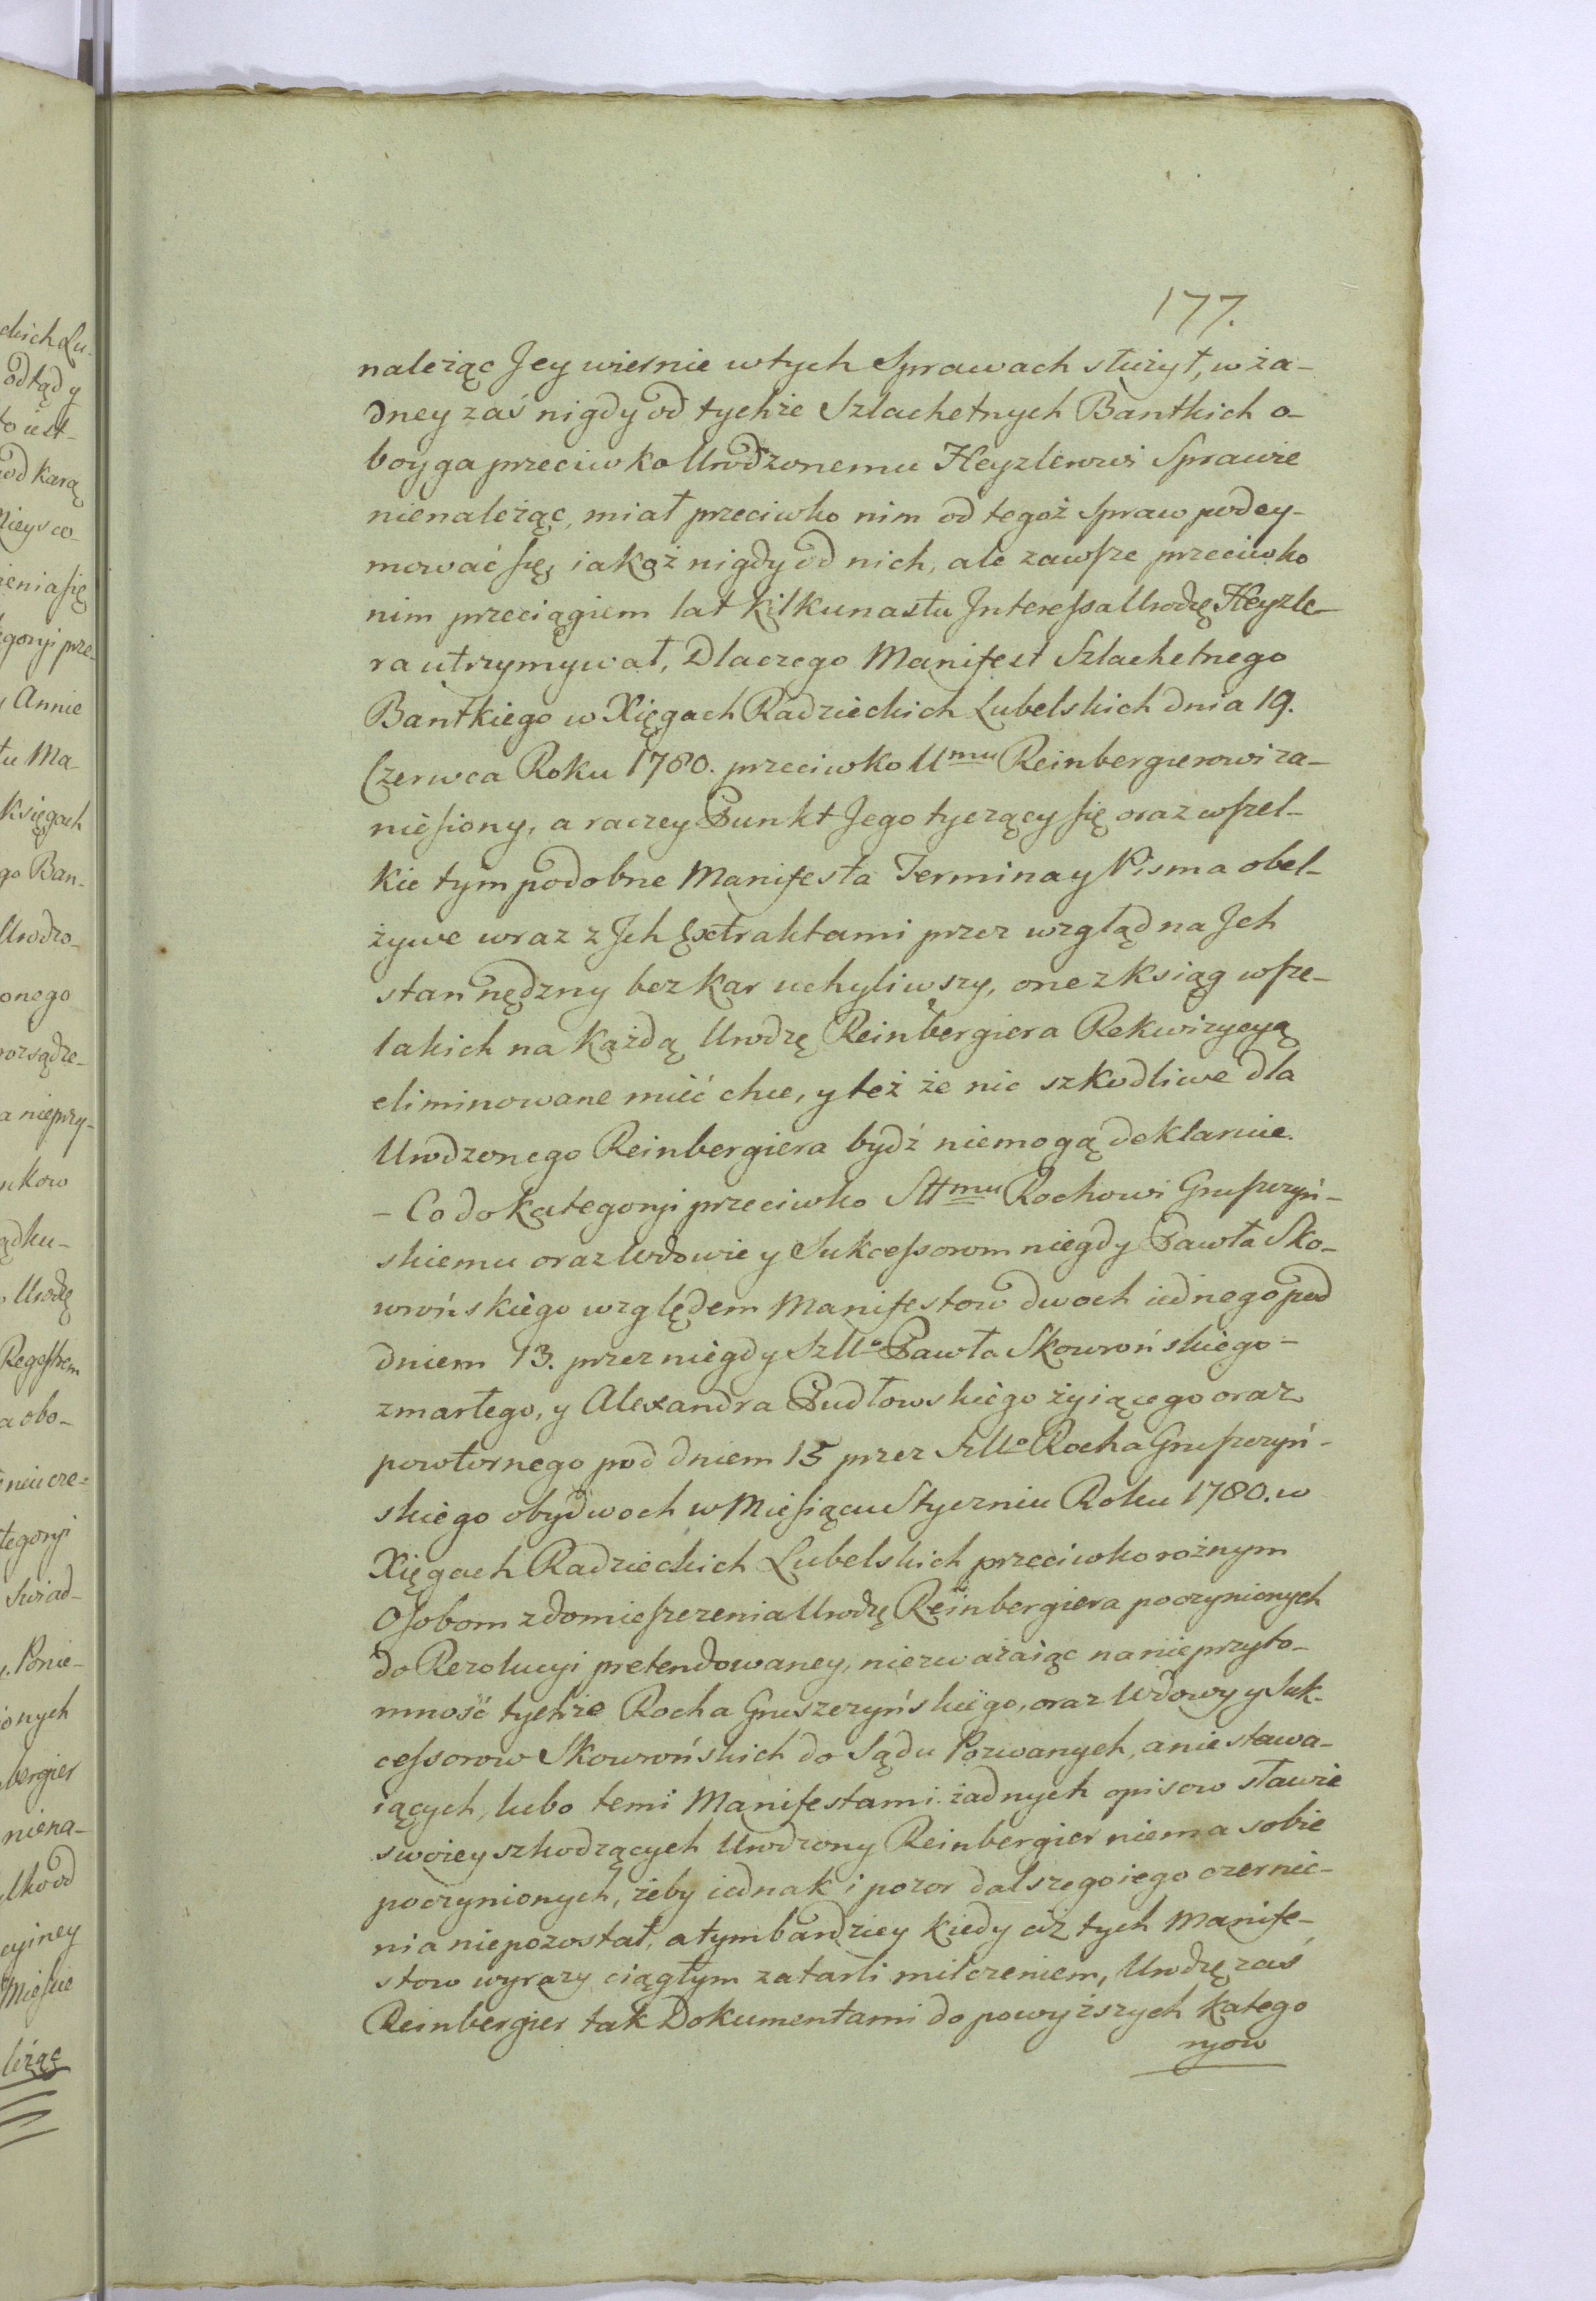 177.
należąc Jey wiernie w tych Sprawach służył, w ża-
dney zaś nigdy od tychże Szlachetnych Bantkich o-
boyga przeciwko Urodzonemu Heyzlerowi Sprawie
nienależąc, miał przeciwko nim od tegoż Spraw podey-
mować się, iakoż nigdy od nich, ale zawsze przeciwko
nim przeciągiem lat kilkunastu Interessa Urodzę Heyzle-
ra utrzymywał, Dlaczego Manifest Szlachetnego
Bantkiego w Xięgach Radzieckich Lubelskich dnia 19.
Czerwca Roku 1780. przeciwko Umu Reinbergierowi za-
niesiony, a raczey Punkt Jego tyczący się oraz wszel-
kie tym podobne Manifesta Termina y Pisma obel-
żywe wraz z Jch Extraktami przez wzgląd na Jch
stan nędzny bez kar uchyliwszy, one z ksiąg wsze-
lakich na każdą Urodzę Reinbergiera Rekwizycyą
eliminowane mieć chce, y też że nic szkodliwe dla
Urodzonego Reinbergiera bydź niemogą deklaruie.
- Co do kategoryi przeciwko Sttmu Rochowi Gruszczyń-
skiemu oraz Wdowie y Sukcessorom niegdy Pawła Sko-
wrońskiego względem Manifestow dwoch iednego pod
dniem 13. przez niegdy Szllo Pawła Skowrońskiego-
zmarłego, y Alexandra Pudłowskiego żyiącego oraz
powtornego pod dniem 15 przez Szllo Rocha Gruszczyń-
skiego obydwoch w Miesiącu Styczniu Roku 1780. w
Xięgach Radzieckich Lubelskich przeciwko rożnym
Osobom z domieszczenia Urodzę Reinbergiera poczynionych
do Rezolucyi pretendowaney, niezważaiąc na nieprzyto-
mność tychże Rocha Gruszczyńskiego, oraz Wdowy y Suk-
cessorow Skowrońskich do Sądu Pozwanych, a nie stawa-
iących, lubo temi Manifestami żadnych opisow sławie
swoiey szkodzących Urodzony Reinbergier niema sobie
poczynionych, żeby iednak i pozor dalszego iego czernie-
nia niepozostał, a tym bardziey kiedy ciż tych Manife-
stow wyrazy ciągłym zatarli milczeniem, Urodzę zaś
Reinbergier tak Dokumentami do powyższych katego
ryow